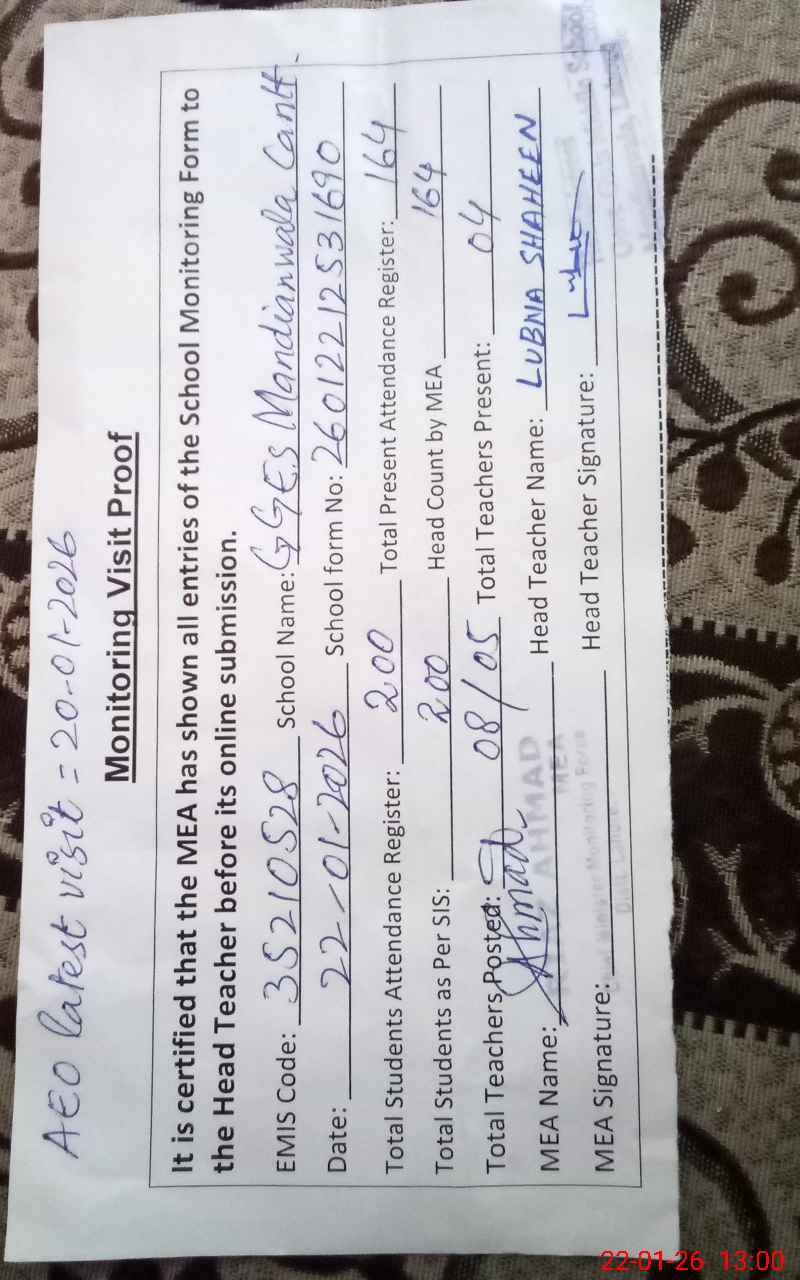 AEO latest visit = 20-01-2026
Monitoring Visit Proof
It is certified that the MEA has shown all entries of the School Monitoring Form to
the Head Teacher before its online submission.
EMIS Code: 35210528 School Name: GGES Mandianwala Cantt.
Date: 22-01-2026 School form No: 2601221253 1690
Total Students Attendance Register: 200 Total Present Attendance Register: 164
Total Students as Per SIS: 200 Head Count by MEA 164
Total Teachers Posted: 08/05 Total Teachers Present: 04
MEA Name: Ahmad Head Teacher Name: LUBNA SHAHEEN
MEA Signature: Head Teacher Signature:
AHMAD
MEA
Monitoring Force
22-01-26 13:00